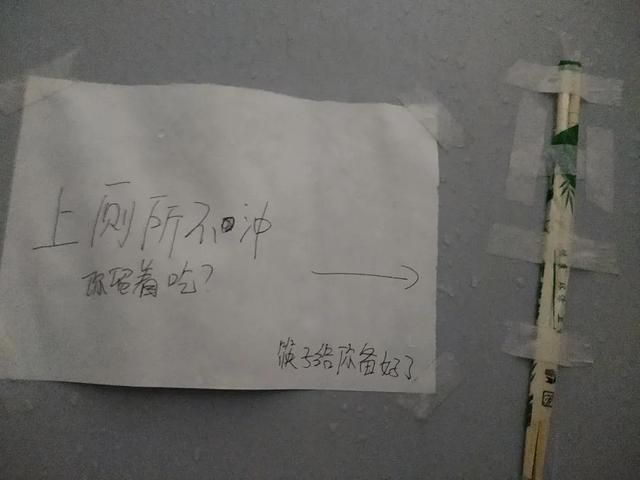 上厕所不冲
你留着吃?
筷子给你备好了